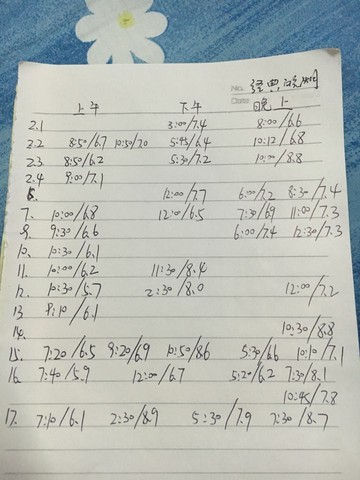 No.
Date
上午 下午 晚上
2.1 3:00/7.4 8:00/6.6
2.2 8:50/6.7 10:50/7.0 5:45/6.4 10:12/6.8
2.3 8:50/6.2 5:30/7.2 10:00/8.8
2.4 9:00/7.1
12:00/7.7 6:00/7.2 8:30/7.4
7. 10:00/6.8 12:00/6.5 7:30/6.9 11:00/7.3
9:30/6.6 6:00/7.4 12:30/7.3
10. 10:30/6.1
11. 10:00/6.2 11:30/8.4
12. 10:30/5.7 2:30/8.0 12:00/7.2
13 8:10/6.1
14. 10:30/8.8
15. 7:20/6.5 9:20/6.9 10:50/8.6 5:30/6.6 10:10/7.1
16. 7:40/5.9 12:00/6.7 5:20/6.2 7:30/8.1
10:45/7.8
17. 7:10/6.1 2:30/8.9 5:30/7.9 7:30/8.7